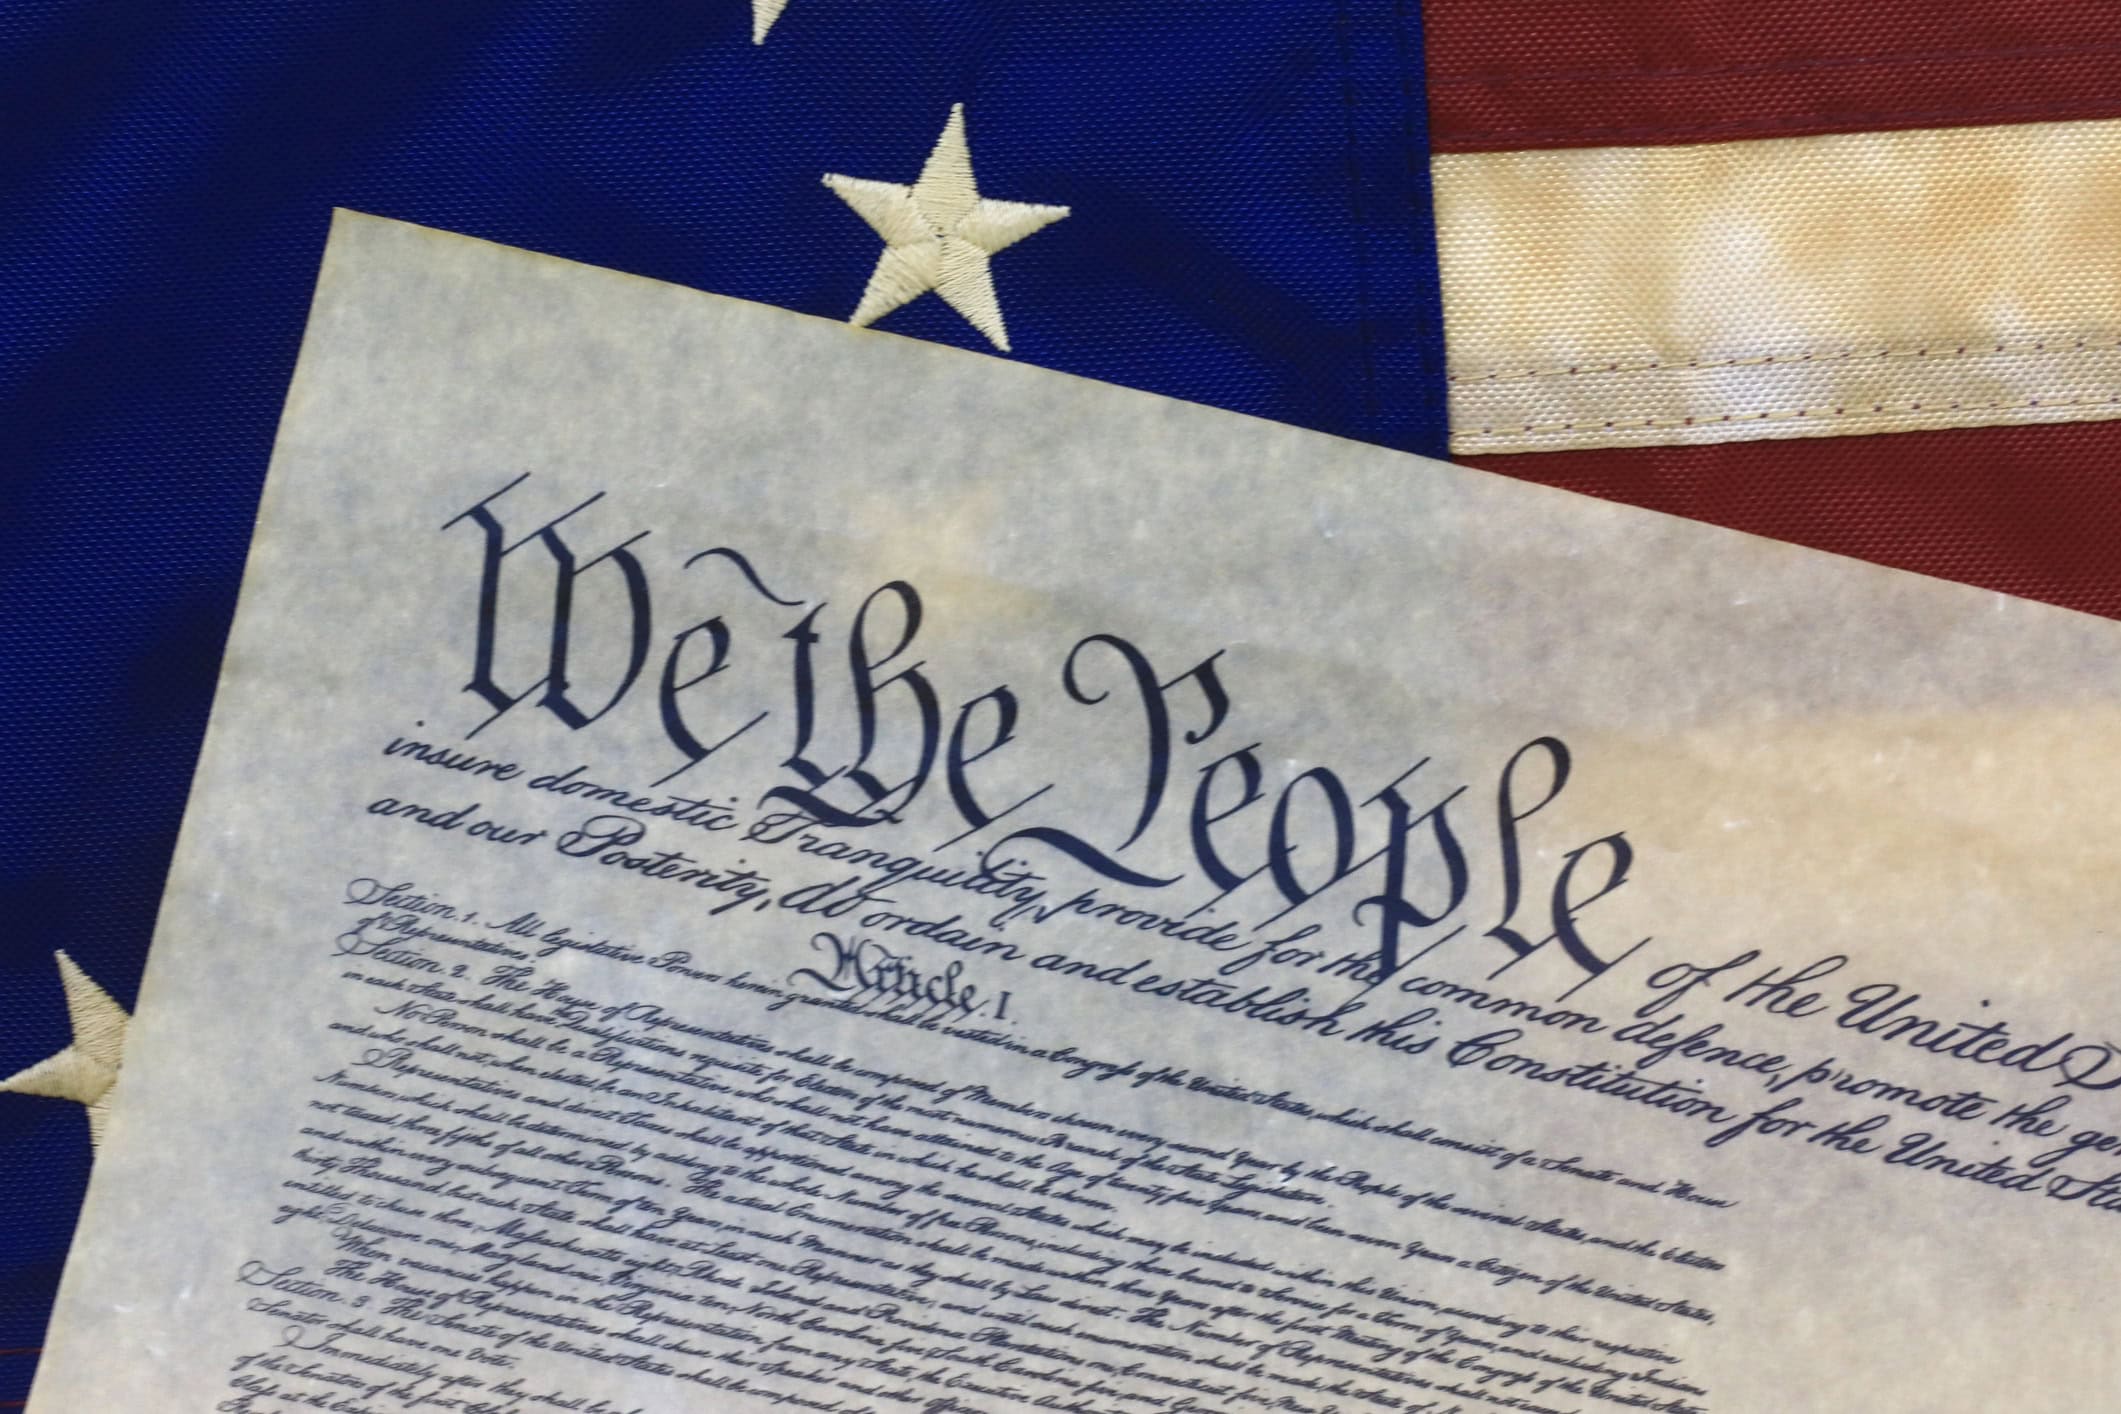 We the People of the United
insure domestic Tranquility, provide for the common defence, promote the
and our Posterity, do ordain and establish this Constitution for the United
Article. I.
Section. 1. All legislative Powers herein granted shall be vested in a Congress of the United States, which shall consist of a Senate and House
of Representatives.
Section. 2. The House of Representatives shall be composed of Members chosen every second Year by the People of the several States, and the Electors
in each State shall have the Qualifications requisite for Electors of the most numerous Branch of the State Legislature.
No Person shall be a Representative who shall not have attained to the Age of twenty five Years, and been seven Years a Citizen of the United States,
and who shall not, when elected, be an Inhabitant of that State in which he shall be chosen.
Representatives and direct Taxes shall be apportioned among the several States which may be included within this Union, according to their respective
Numbers, which shall be determined by adding to the whole Number of free Persons, including those bound to Service for a Term of Years, and excluding Indians
not taxed, three fifths of all other Persons. The actual Enumeration shall be made within three Years after the first Meeting of the Congress of the United States
and within every subsequent Term of ten Years, in such Manner as they shall by Law direct. The Number of Representatives shall not exceed
thirty Thousand, but each State shall have at Least one Representative; and until such enumeration shall be made, the State of
entitled to chuse three, Massachusetts eight, Rhode Island and Providence Plantations one, Connecticut five,
eight, Delaware one, Maryland six, Virginia ten, North Carolina five, South Carolina five, and
When vacancies happen in the Representation from any State, the Executive
The House of Representatives shall chuse their Speaker and other
Section. 3. The Senate of the United States shall be composed of
Senator shall have one Vote.
Immediately after they shall be
of the Senators of the first
Class at the